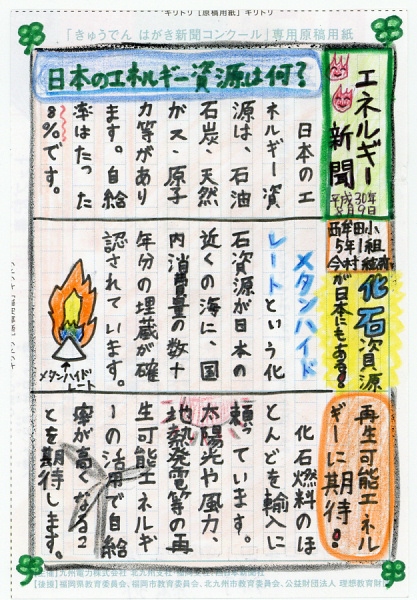 キリトリ【原稿用紙】キリトリ
「きゅうでん はがき新聞コンクール」専用原稿用紙
エネルギー
新聞
平成30年
月9日
西牟田小
5年1組
今村
日本のエネルギー資源は何?
日本のエ
ネルギー資
源は、石油
石炭、天然
ガス・原子
力等があり
ます。自給
率はたった
8%です。
化石資源
が日本にもある!
メタンハイド
レートという化
石資源が日本の
近くの海に、国
内消費量の数十
年分の埋蔵が確
認されています。
メタンハイド
レート
再生可能エネル
ギーに期待!
化石燃料のほ
とんどを輸入に
頼っています。
太陽光や風力、
地熱発電等の再
生可能エネルギ
ーの活用で自給
率が高くなるこ
とを期待します。
キリトリ
【主催】九州電力株式会社 北九州支社 福岡
【後援】福岡県教育委員会、福岡市教育委員会、北九州市教育委員会、公益財団法人 理想教育財